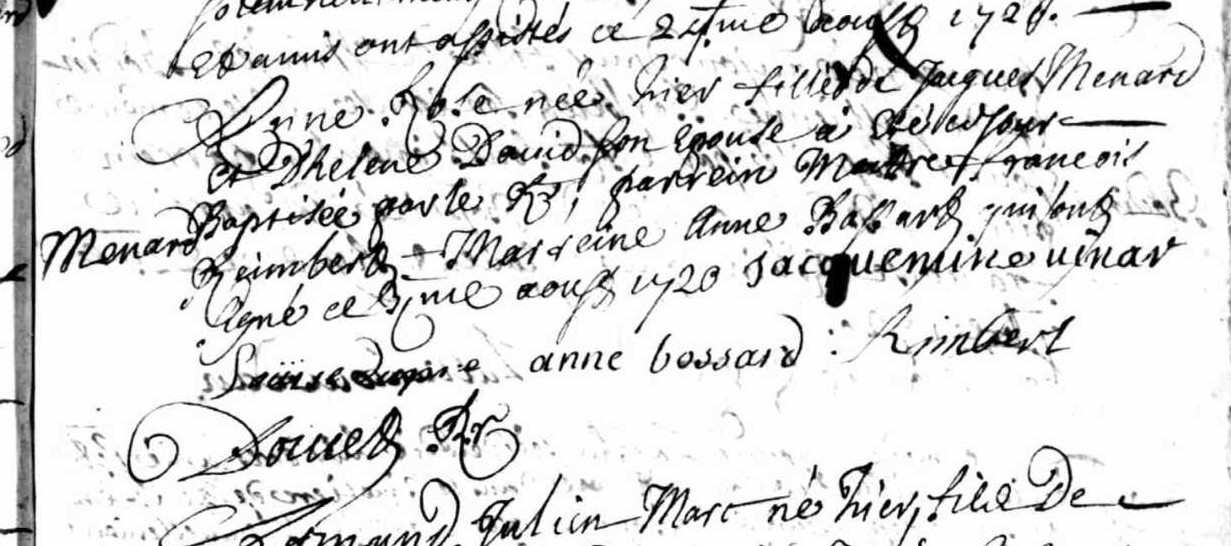 Et amis ont assistés ce 24me aoust 1728.
Anne Rose née hier fille de Jacques Menard
et D'helene David son Epouse a été ce jour
Menard
Baptisée par le Rr, parrein Maitre francois
Reimbert - Marreine Anne Bassard qui ont
signé ce me aoust 1728 jacquemine
anne bossard . Rimbert
Douet Rr
Julien Marc né hier, fils De